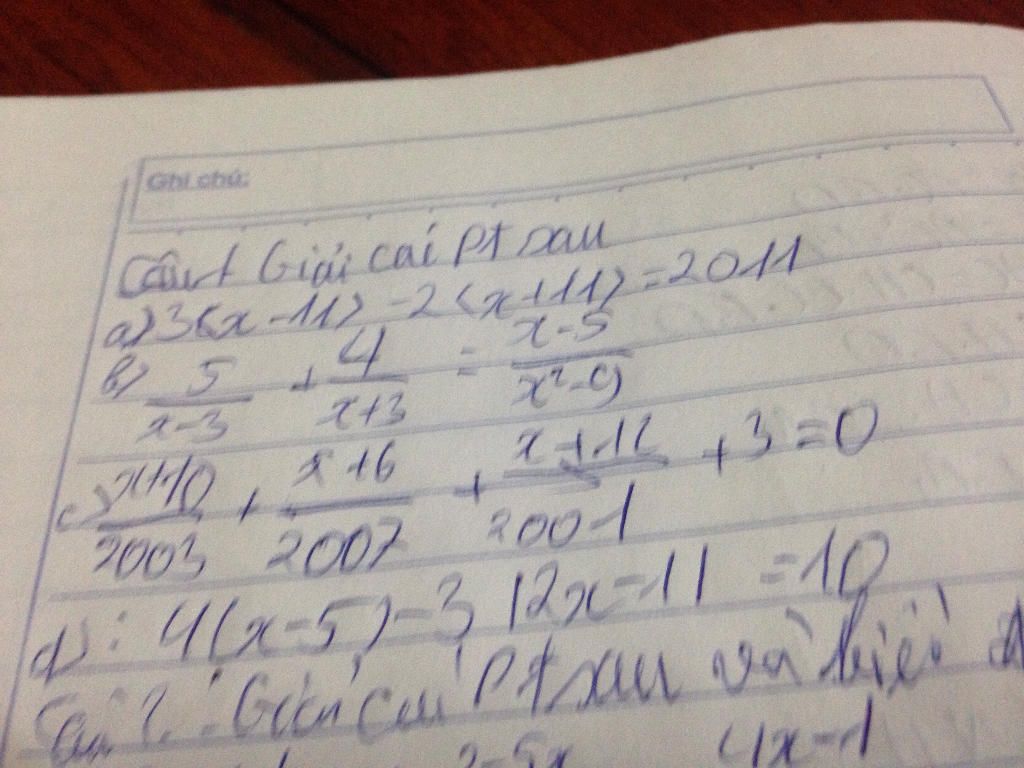 Ghi chú:
Câu 1 Giải cái pt sau
a) 3(x-11) - 2(x+11) = 2011
b) 5/(x-3) + 4/(x+3) = (x-5)/(x²-9)
c) (x+10)/2003 + (x+6)/2007 + (x+12)/2001 + 3 = 0
d): 4(x-5) - 3 |2x-11| = 10
Câu 2: Giải cái pt sau và biểu
2-5x 4x-1